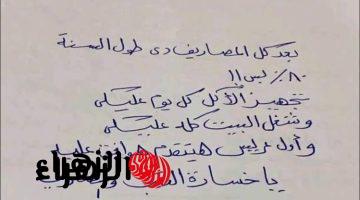 بعد كل المصاريف دى طول السنة
٨٠٪ بس !!
تجهيز الأكل كل يوم عليكى
وشغل البيت كله عليكى
وأول عريس هيتقدم
يا خسارة
الزهراء